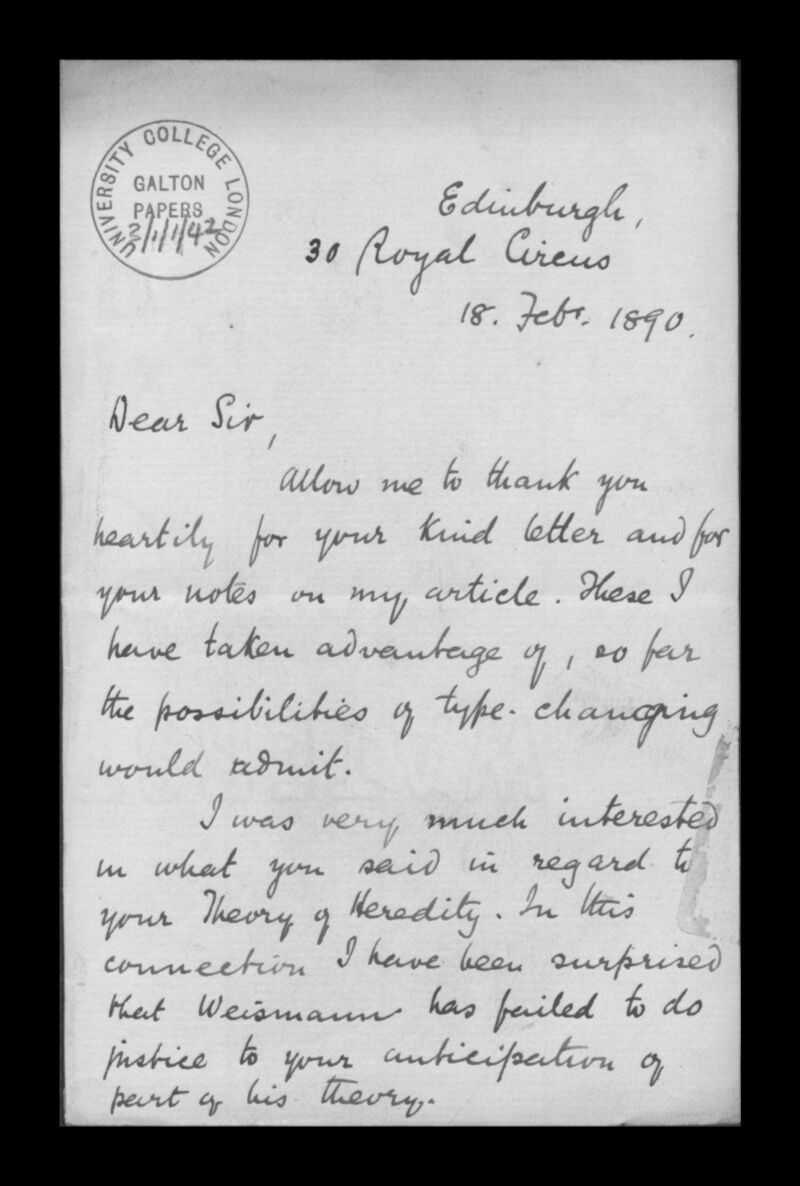 UNIVERSITY COLLEGE LONDON
GALTON
PAPERS
2/1/1/1/42
Edinburgh,
30 Royal Circus
18. Febr. 1890.
Dear Sir,
Allow me to thank you
heartily for your kind letter and for
your notes on my article. These I
have taken advantage of, so far
the possibilities of type-changing
would admit.
I was very much interested
in what you said in regard to
your Theory of Heredity. In this
connection I have been surprised
that Weismann has failed to do
justice to your anticipation of
part of his theory.